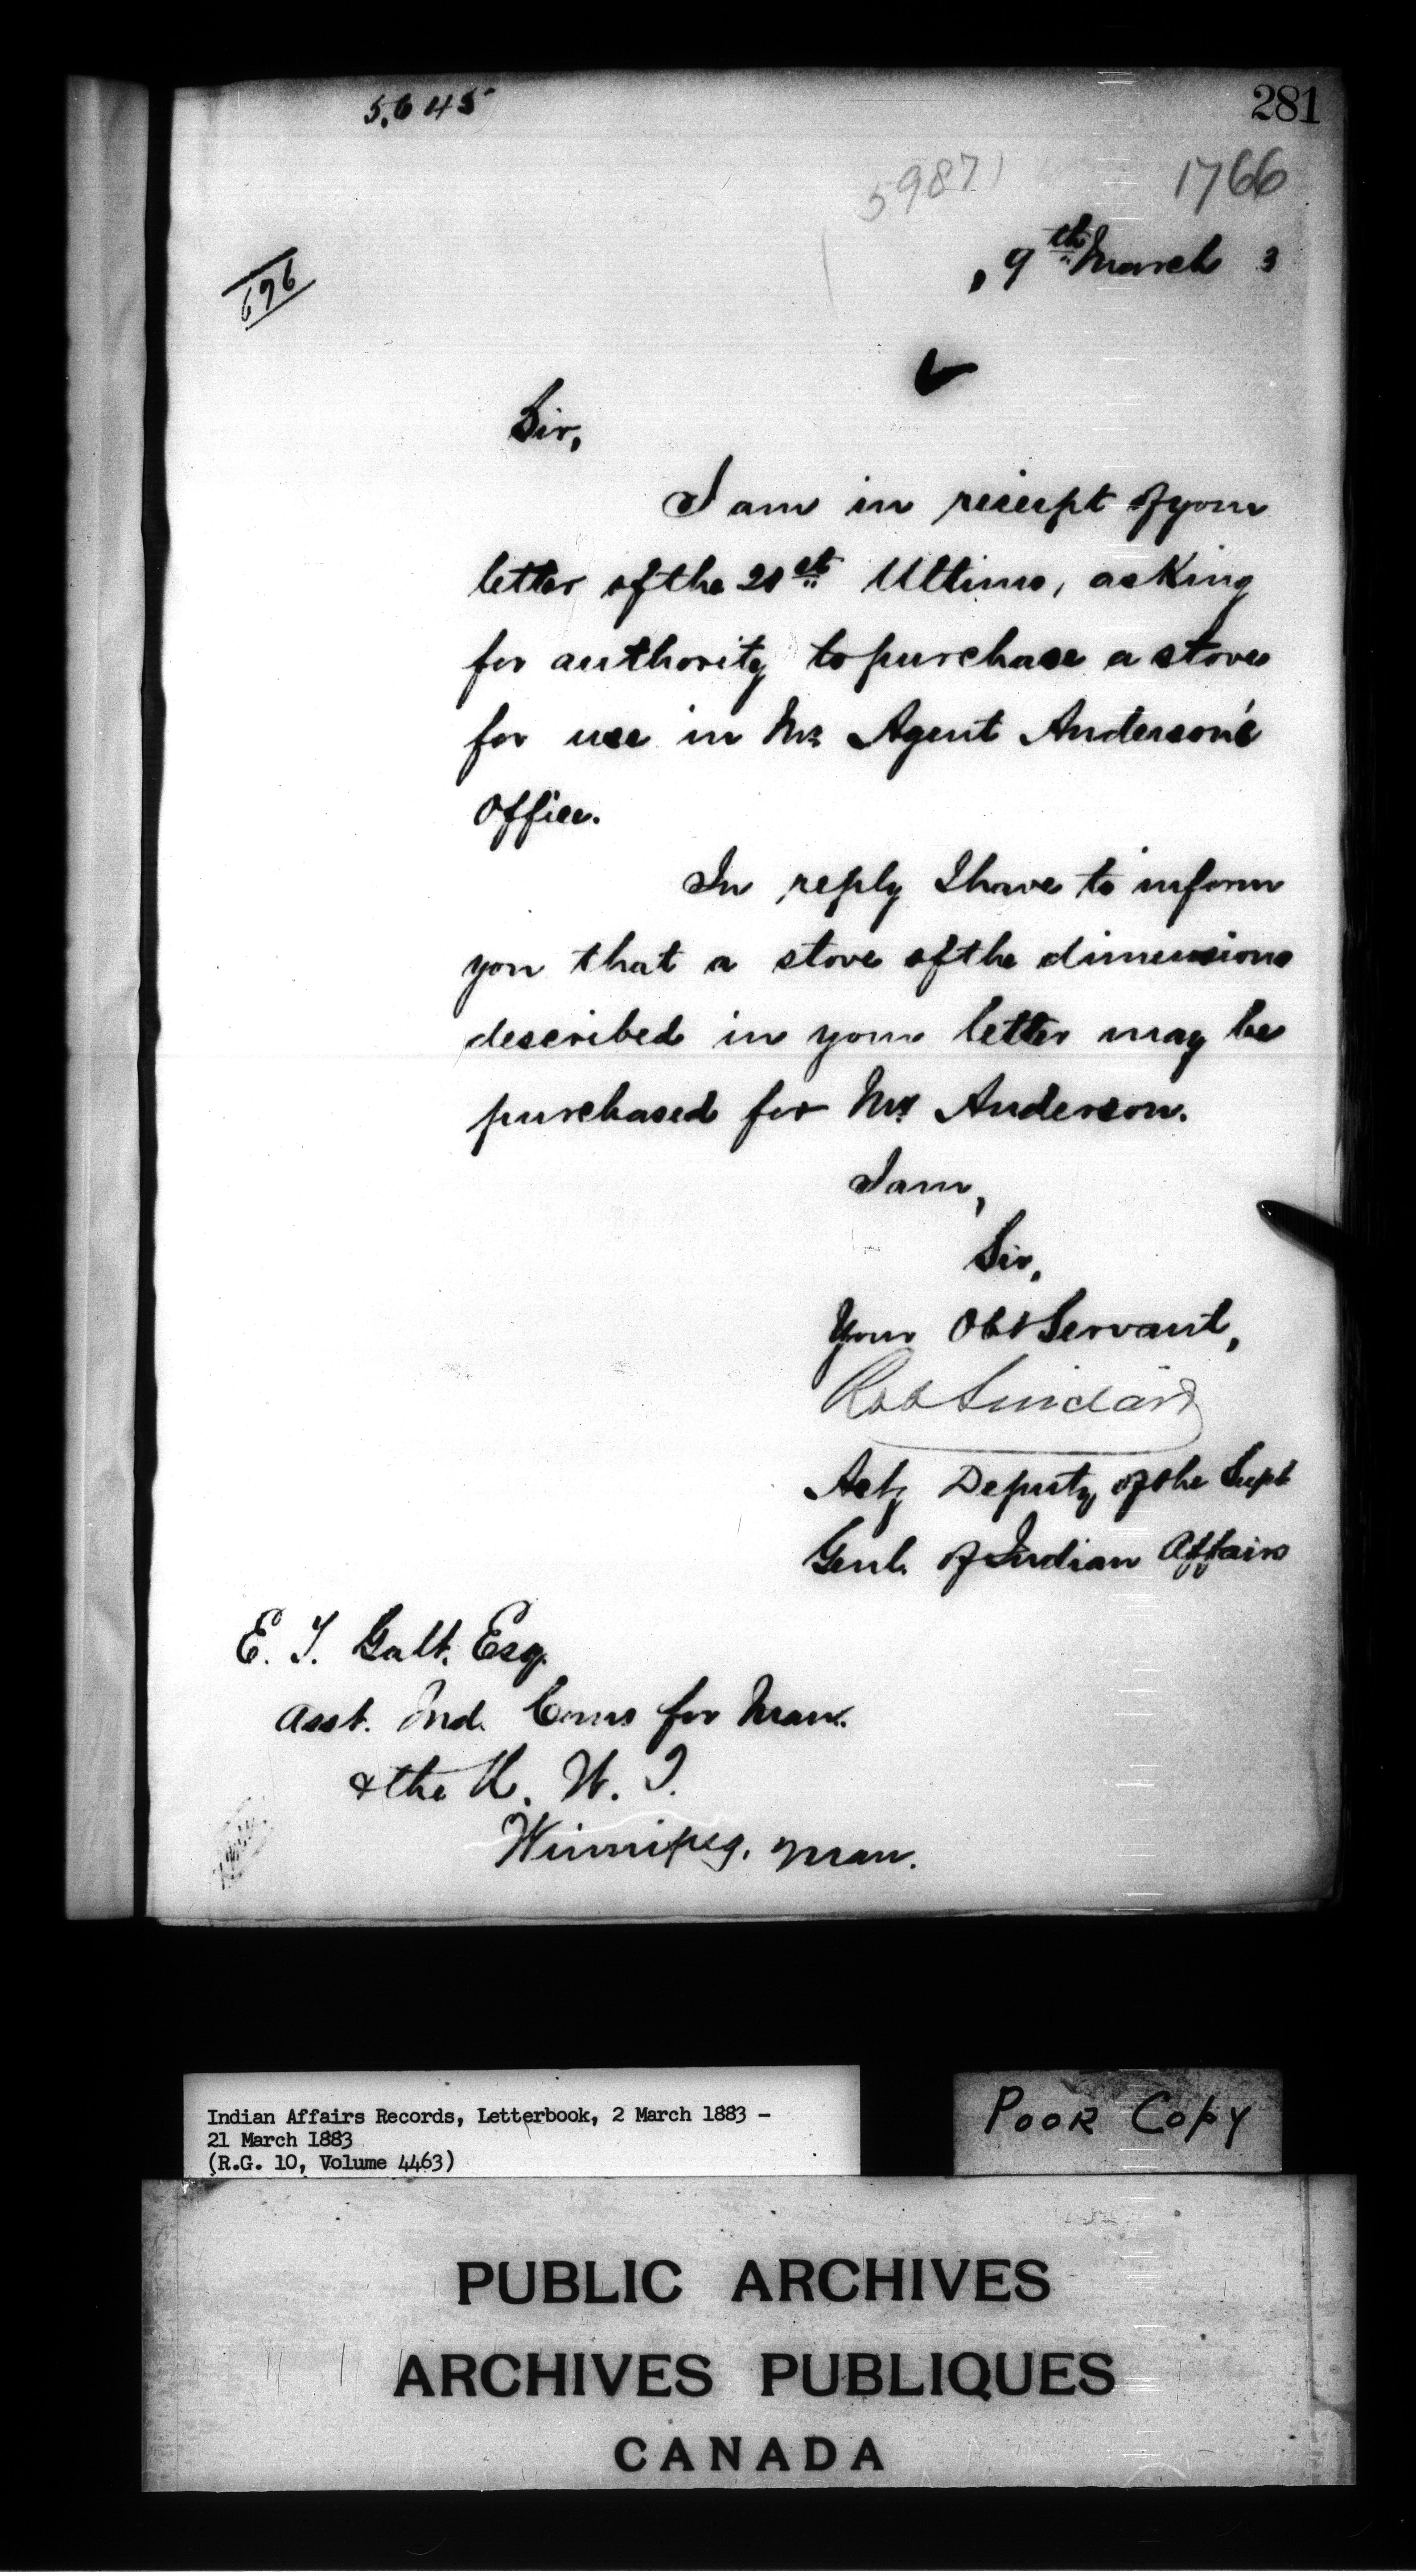 5,645
281
5987
1766
696
, 9th March 3
Sir,
I am in receipt of your
letter of the 21st Ultimo, asking
for authority to purchase a stove
for use in Mr Agent Anderson's
Office.
In reply I have to inform
you that a stove of the dimensions
described in your letter may be
purchased for Mr Anderson.
I am,
Sir,
Your Obt Servant,
Rob Sinclair
Actg Deputy of the Supt
Genl. of Indian Affairs
E. T. Galt. Esq.
Asst. Ind. Coms for Man.
& the N. W. T.
Winnipeg, Man.
Indian Affairs Records, Letterbook, 2 March 1883 –
21 March 1883
(R.G. 10, Volume 4463)
POOR COPY
PUBLIC ARCHIVES
ARCHIVES PUBLIQUES
CANADA